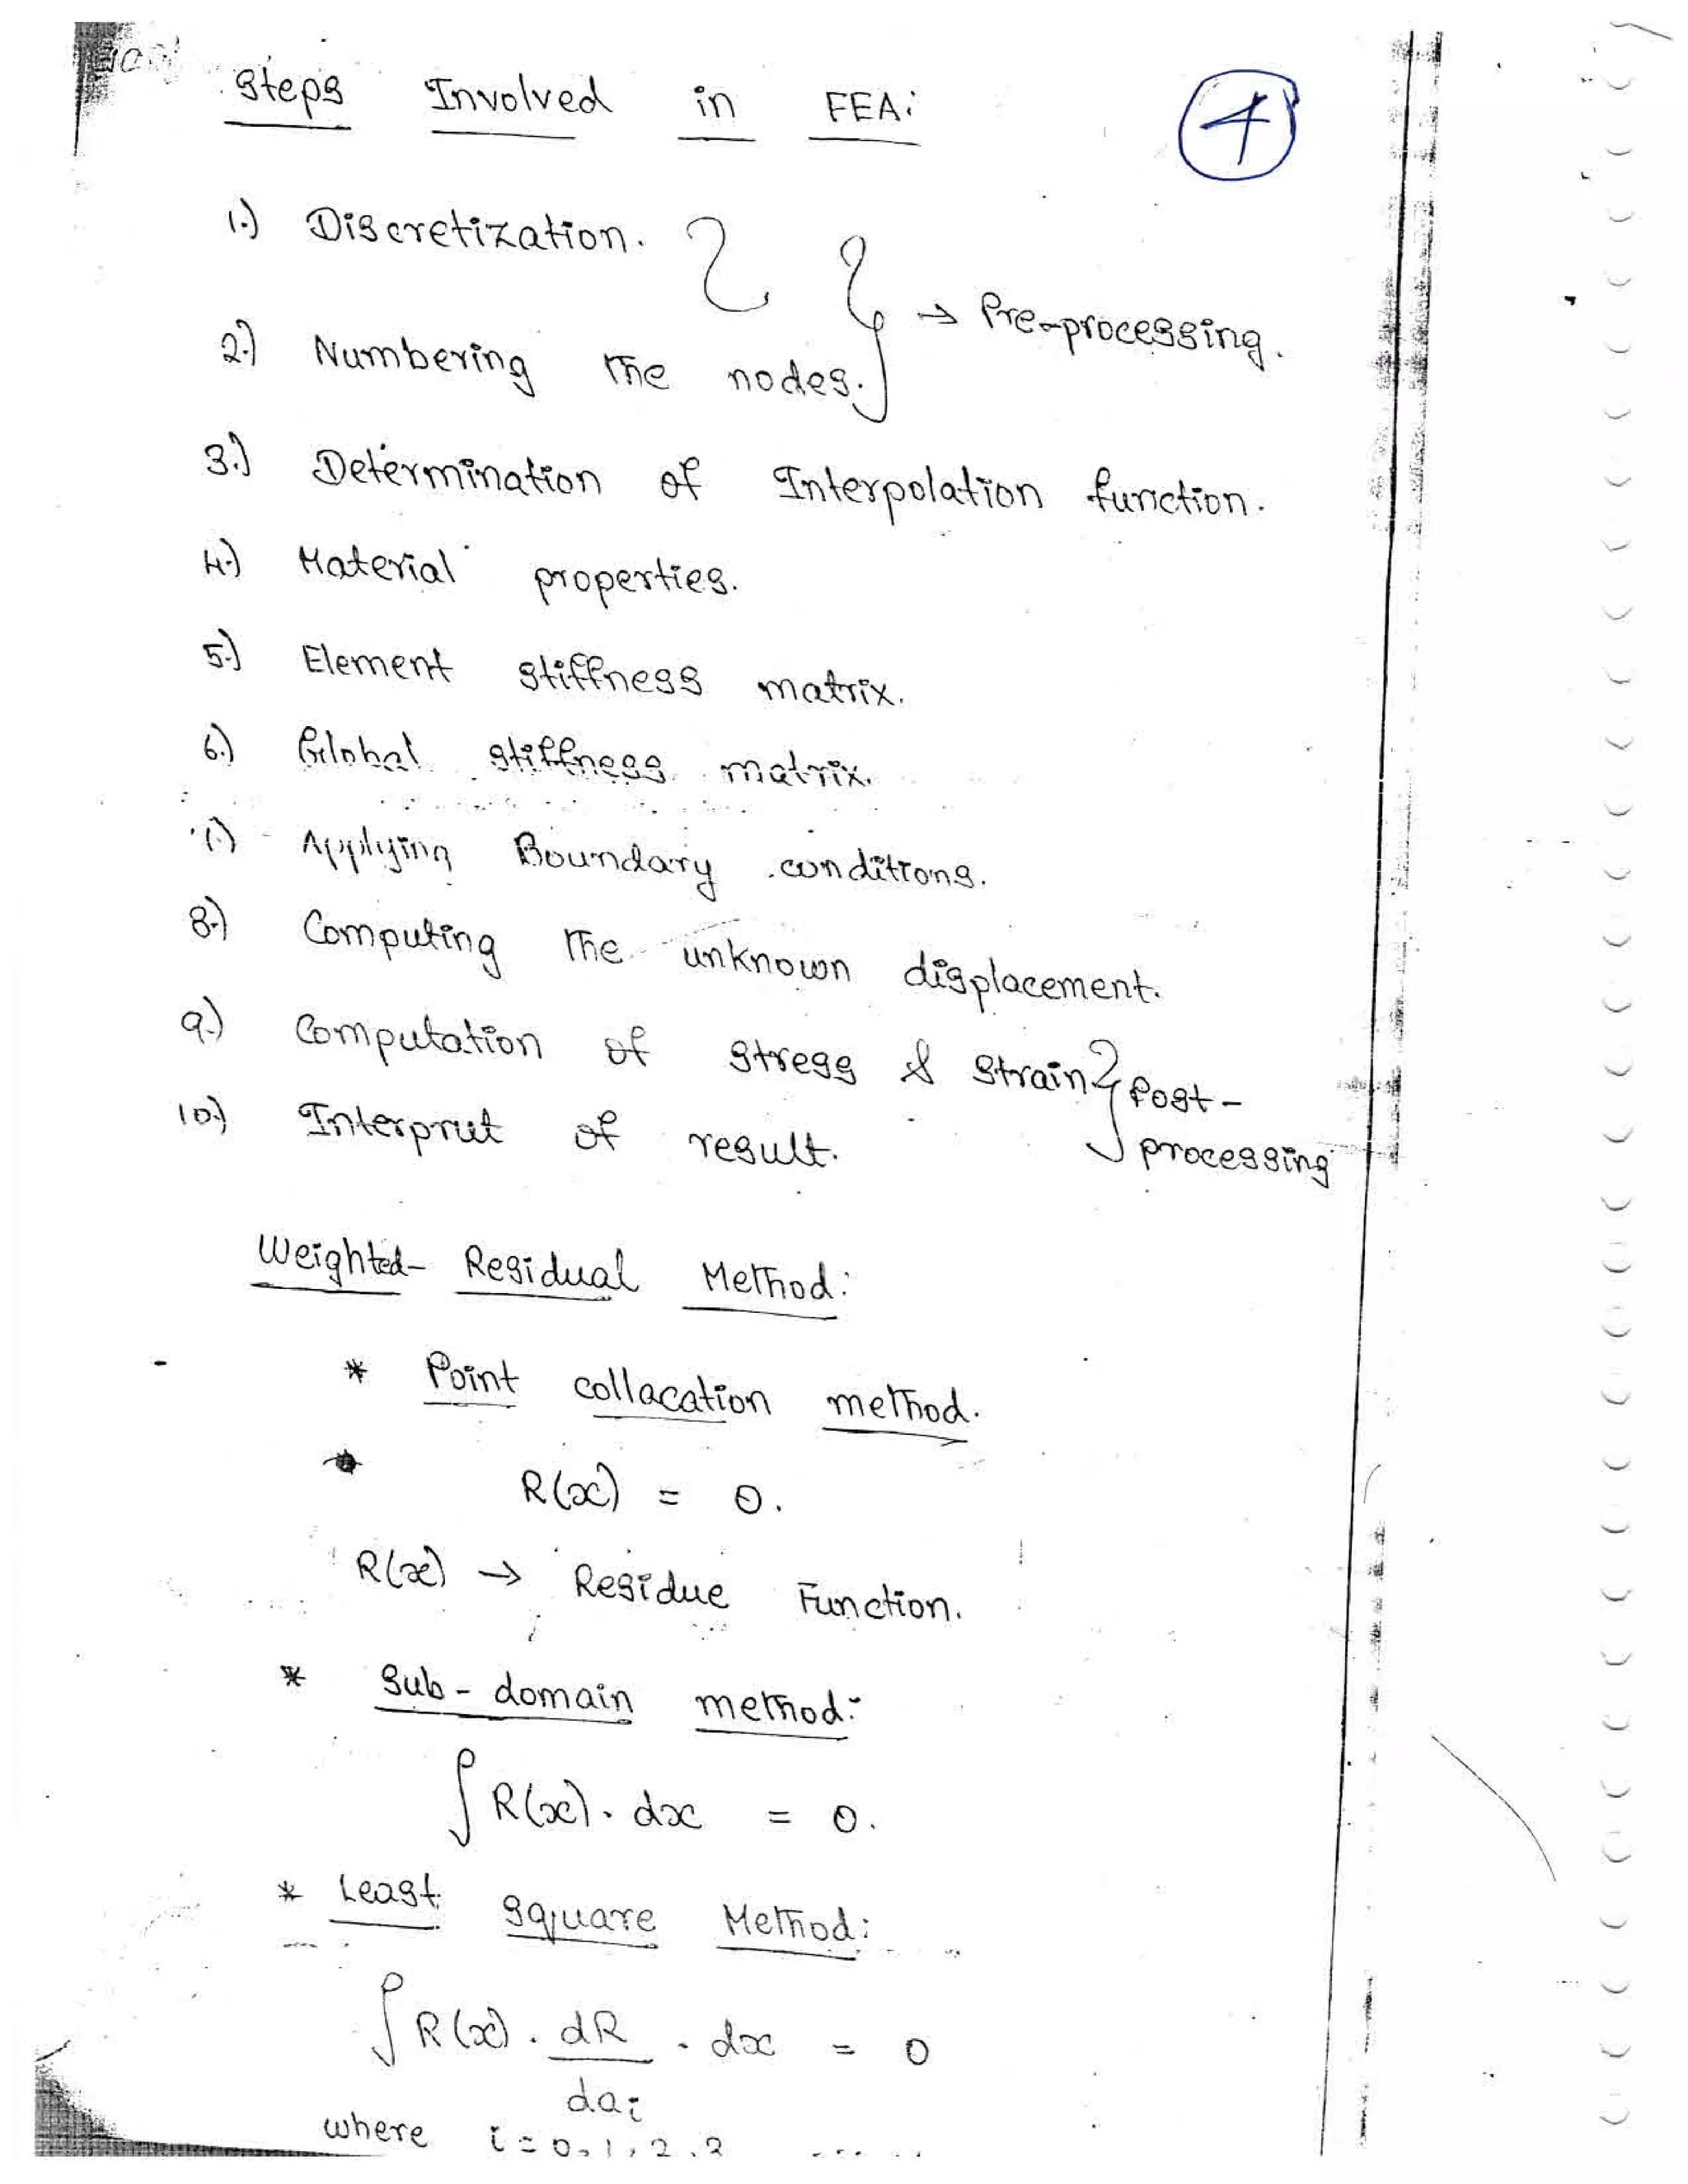 Steps Involved in FEA:
4
1.) Discretization.
2.) Numbering the nodes. → Pre-processing.
3.) Determination of Interpolation function.
4.) Material properties.
5.) Element stiffness matrix.
6.) Global stiffness matrix.
7.) Applying Boundary conditions.
8.) Computing the unknown displacement.
9.) Computation of stress & strain } Post-
10.) Interprut of result. processing
Weighted- Residual Method:
* Point collacation method.
R(x) = 0.
R(x) → Residue Function.
* Sub-domain method:
∫ R(x). dx = 0.
* Least square Method:
∫ R(x) . dR/da_i . dx = 0
where i = 0, 1, 2, 3 .....